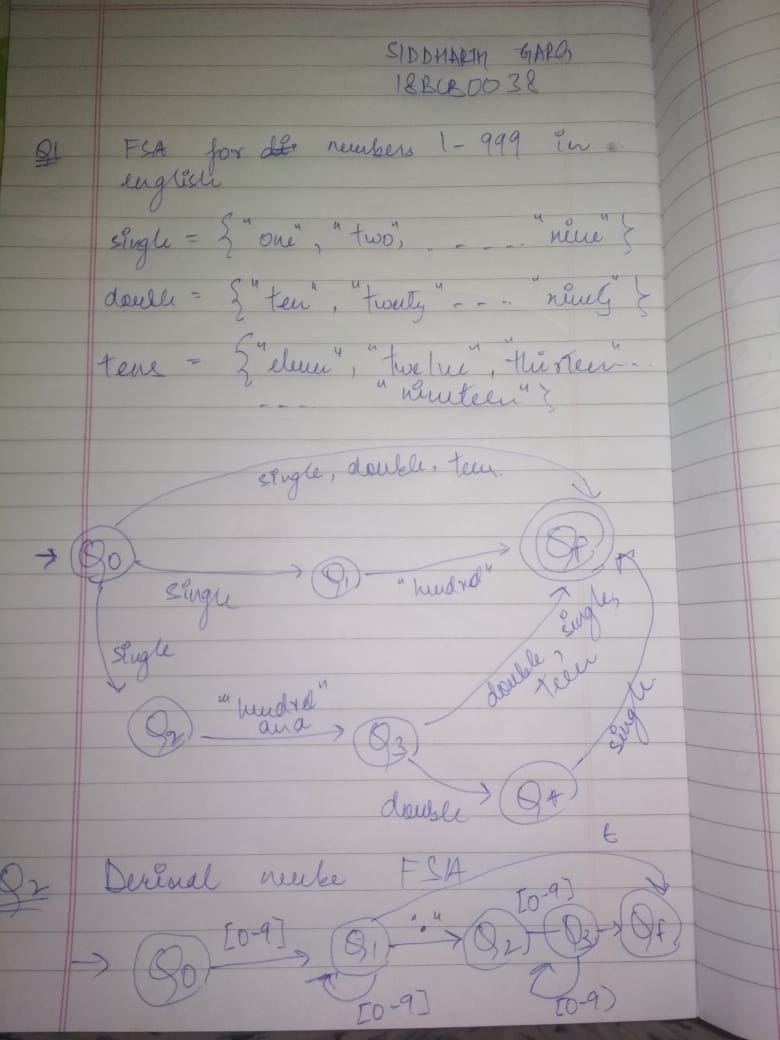 SIDDHARTH GARG
18BCB0038
Q1 FSA for numbers 1 - 999 in
english
single = { "one", "two", - - - - "nine" }
double = { "ten", "twenty" - - - - "ninety" }
tens = { "eleven", "twelve", "thirteen" - - -
- - - - "nineteen" }
single, double, teen.
→ Q0
single
Q1
"hundred"
Qf
single
Q2
"hundred"
and
Q3
double, single,
teen
double
Q4
single
Q2 Decimal numbe FSA
ε
→ Q0
[0-9]
Q1
"."
Q2
[0-9]
Q3
Qf
[0-9]
[0-9)